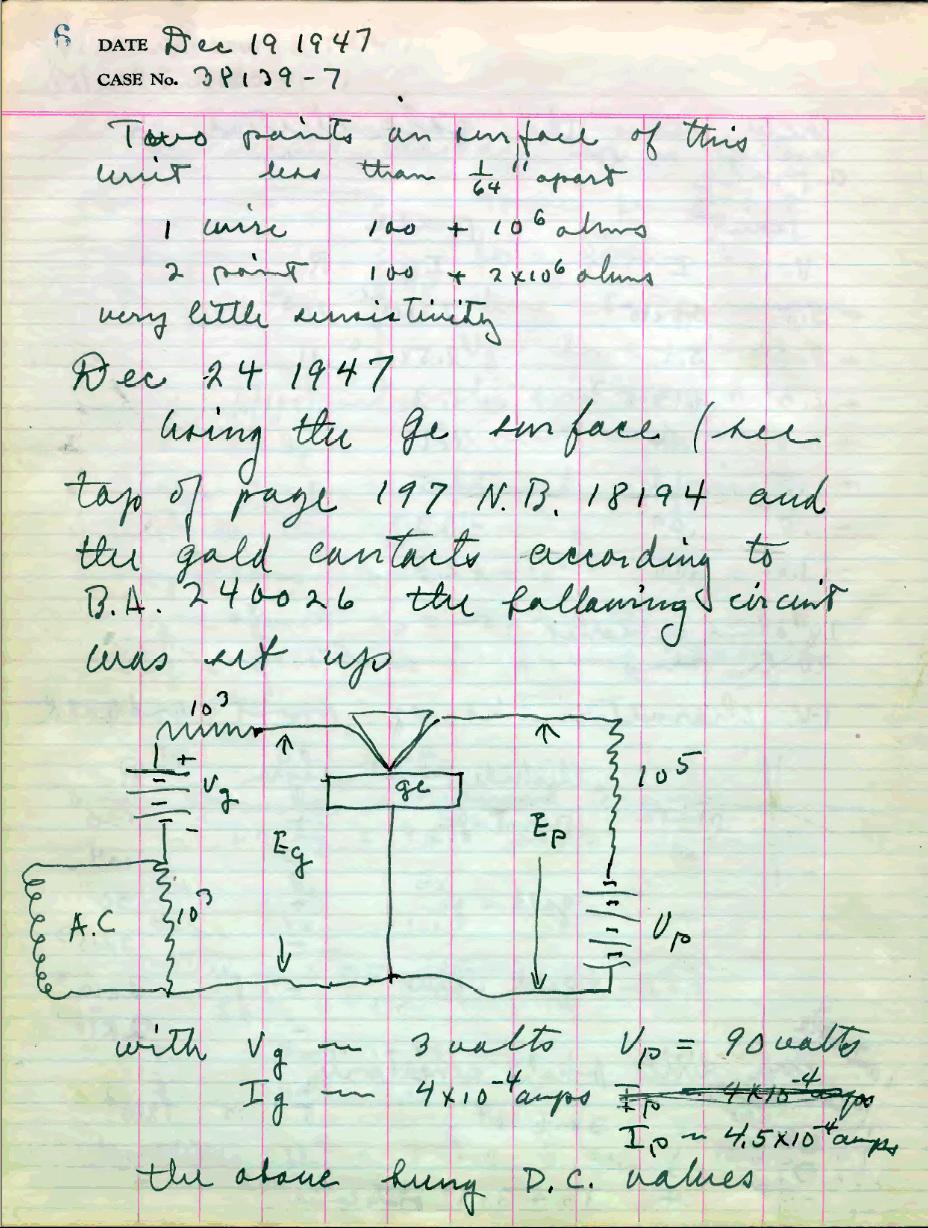 6
DATE Dec 19 1947
CASE No. 38139-7
Two points on surface of this
unit less than 1/64" apart
1 wire 100 + 10⁶ ohms
2 point 100 + 2x10⁶ ohms
very little sensistivity
Dec 24 1947
Using the Ge surface (see
top of page 197 N.B. 18194 and
the gold contacts according to
B.A. 240026 the following circuit
was set up
10³
+
Vg
-
ge
10⁵
Eg
Ep
A.C
10³
Vp
with Vg ~ 3 volts Vp = 90 volts
Ig ~ 4x10⁻⁴ amps Ip ~ 4x10⁻⁴ amps
Ip ~ 4.5x10⁻⁴ amps
the above being D.C. values